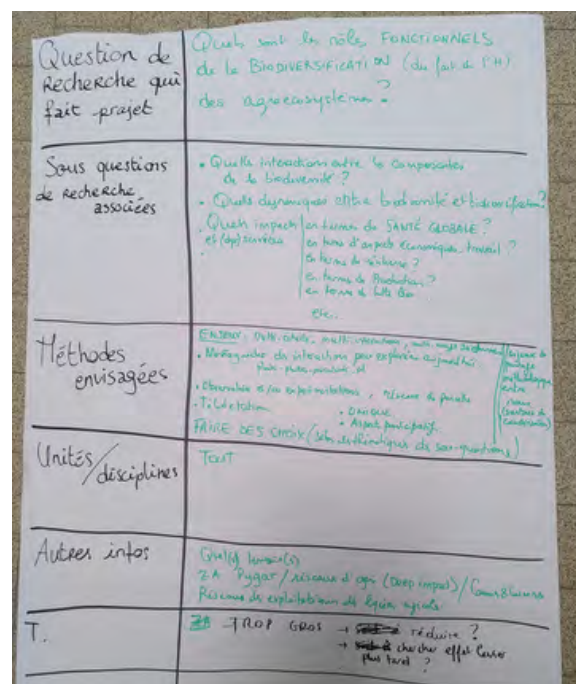 Question de
Recherche qui
fait projet
Quels sont les rôles FONCTIONNELS
de la BIODIVERSIFICATION (du fait de l'H)
des agroécosystèmes ?
Sous questions
de Recherche
associées
• Quelles interactions entre les composantes
de la biodiversité ?
• Quels dynamiques entre biodiversité et biodiversification ?
Quels impacts
et (dys)services
en termes de SANTÉ GLOBALE ?
en terme d'aspects économiques, travail ?
en termes de résilience ?
en termes de Production ?
en terme de lutte Bio
etc..
Méthodes
envisagées
multi-
des interactions peu explorées aujourd'hui
• Observations et/ou expérimentations, réseaux de parcelles
• Télédétection
• Aspect participatif
FAIRE DES CHOIX (selon de sous-questions)
Unités/
disciplines
TOUT
Autres infos
Quel(s) terrain(s)
ZA Pygar / réseaux d'agri /
Réseaux des exploitations de lycées agricoles
T.
TROP GROS → réduire ?
→ chercher effet levier
plus tard ?